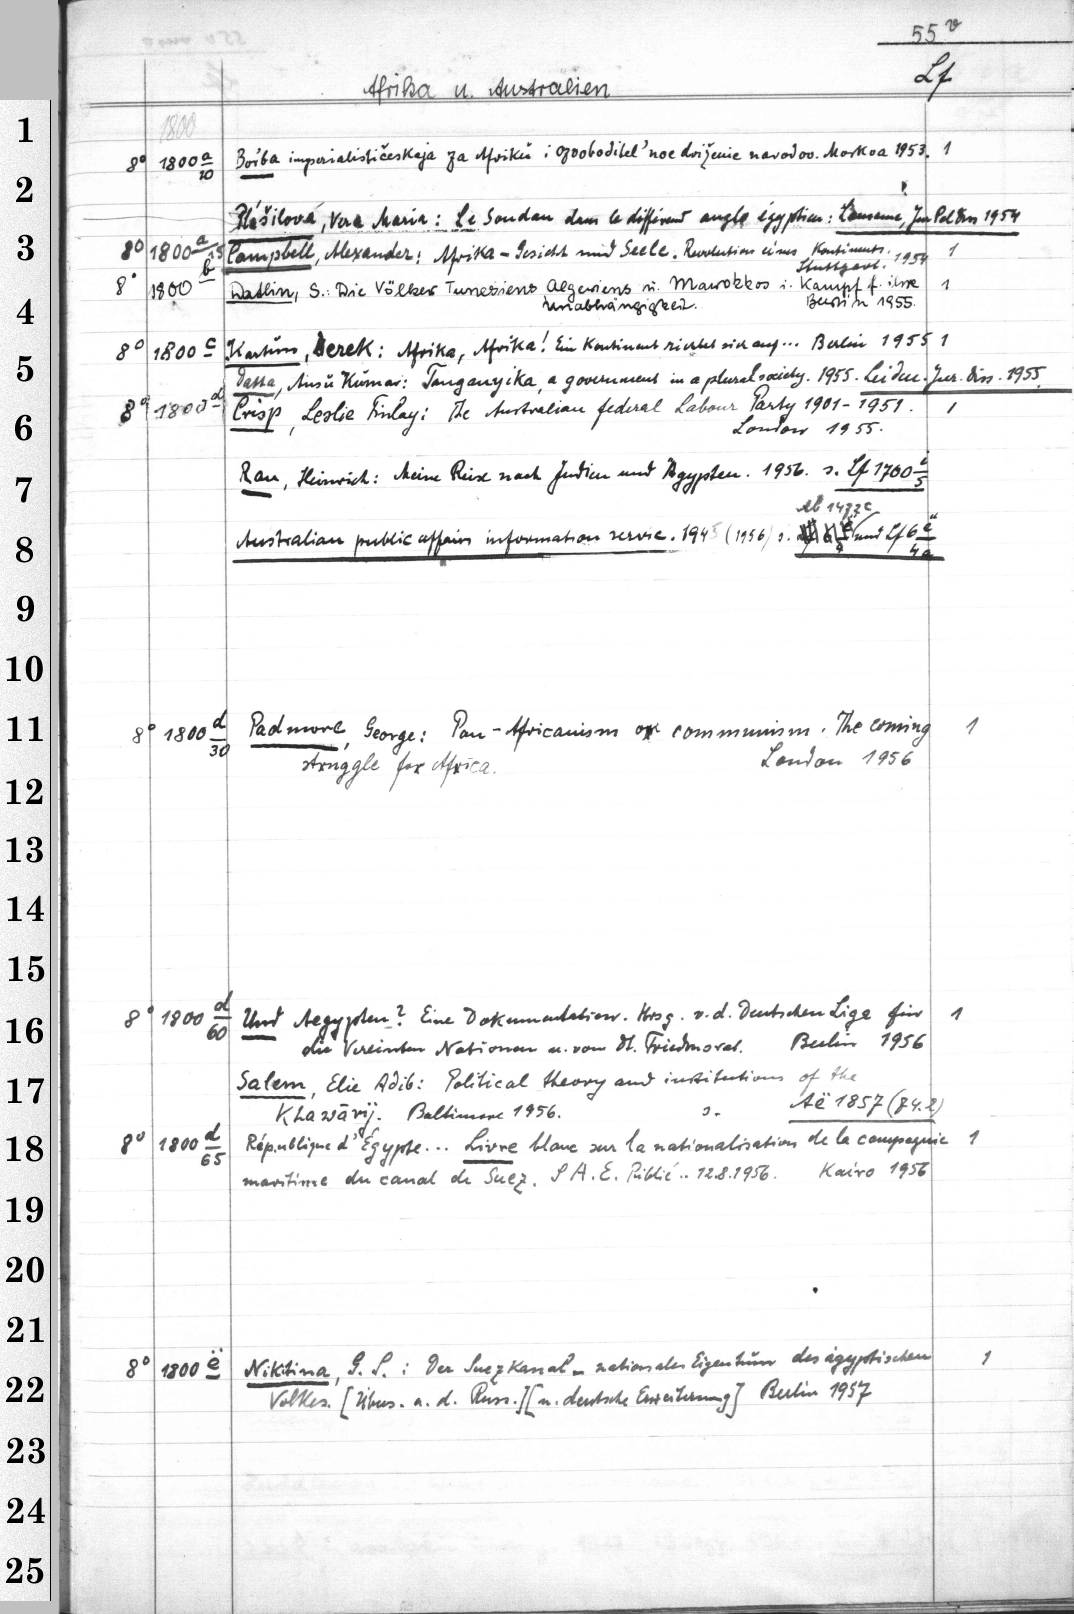 55 v
Lf
Afrika u. Australien
1800
1
8° 1800 a/20 Bor'ba imperialističeskaja za Afriku i osvoboditel'noe dviženie narodov. Moskva 1953. 1
2
Plešilová, Vera Maria: Le Soudan dans le différend anglo égyptien: Lausanne, Jur Pol Diss 1954
3
8° 1800 a/25 Campbell, Alexander: Afrika - Gesicht und Seele. Revolution eines Kontinents. 1
Stuttgart. 1954
8° 1800 b Datlin, S.: Die Völker Tunesiens Algeriens u. Marokkos i. Kampf f. ihre 1
4
Unabhängigkeit. Berlin 1955.
8° 1800 c Kartun, Derek: Afrika, Afrika! Ein Kontinent richtet sich auf... Berlin 1955 1
5
Datta, Ansu Kumar: Tanganyika, a government in a plural society. 1955. Leiden. Jur. Diss. 1955
8° 1800 d Crisp, Leslie Finlay: The Australian federal Labour Party 1901-1951. 1
6
London 1955.
Rau, Heinrich: Meine Reise nach Indien und Ägypten. 1956. s. Lf 1700 i/5
7
Ab 1477c
Australian public affairs information service. 1945 (1956) s. und Lf 6 ë/4a
8
9
10
11
8° 1800 d/30 Padmore, George: Pan-Africanism or communism. The coming 1
struggle for Africa. London 1956
12
13
14
15
8° 1800 d/60 Und Aegypten? Eine Dokumentation. Hrsg. v. d. Deutschen Liga für 1
16
die Vereinten Nationen u. vom Dt. Friedensrat. Berlin 1956
17
Salem, Elie Adib: Political theory and institutions of the
Khawārij. Baltimore 1956. s. Aë 1857 (74.2)
18
8° 1800 d/65 République d'Égypte... Livre blanc sur la nationalisation de la compagnie 1
maritime du canal de Suez. S A. E. Publié.. 12.8.1956. Kairo 1956
19
20
21
8° 1800 ë Nikitina, G. S.: Der Suezkanal - nationales Eigentum des ägyptischen 1
22
Volkes. [Übers. a. d. Russ.] [u. deutsche Erweiterung] Berlin 1957
23
24
25